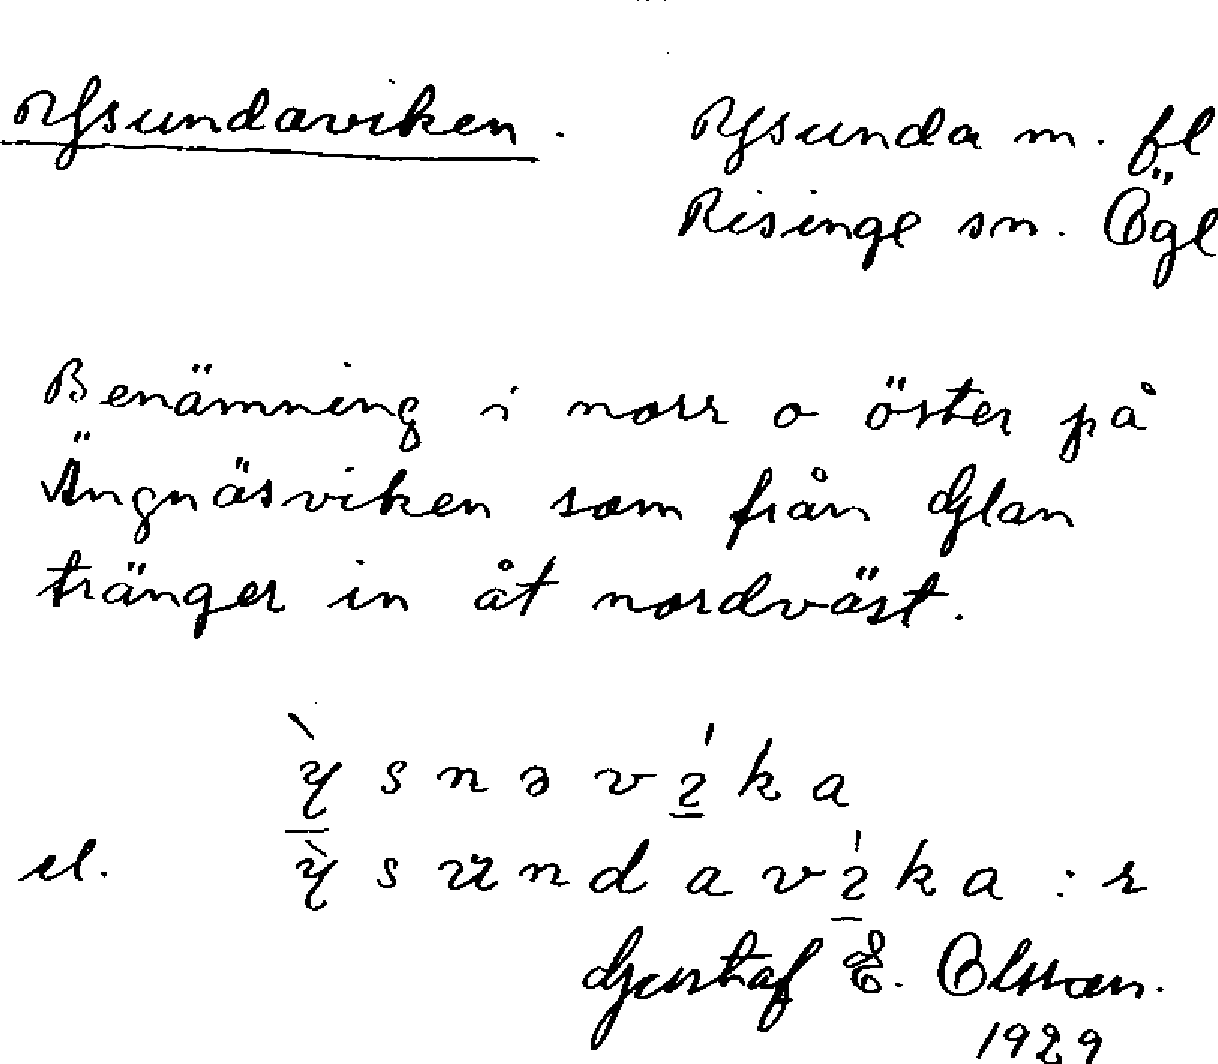 Ysundaviken. Ysunda m. fl
Risinge sn. Ögl
Benämning i norr o öster på
Ängnäsviken som från Glan
tränger in åt nordväst.
ỳsnəvíka
el. ỳsundavíka :r
Gustaf E. Olsson.
1929